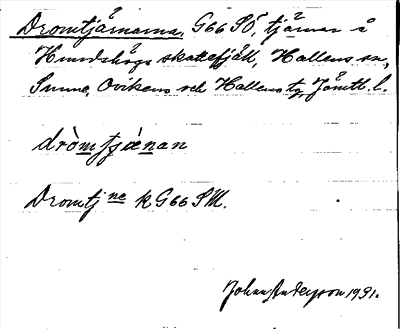 Dromtjärnarna, G66 SÖ, tjärnar å
Hundshögs skattefjäll, Hallens sn,
Sunne, Ovikens och Hallens tg, Jämtl. l.
dròmtjænan
Dromtj ne k G66 SM.
Johan Anderson 1931.